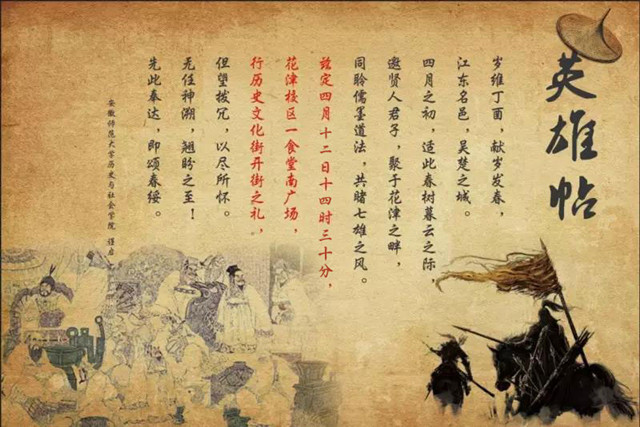 英雄帖
岁维丁酉，献岁发春，
江东名邑，吴楚之城。
四月之初，适此春树暮云之际，
邀贤人君子，聚于花津之畔，
同聆儒墨道法，共赌七雄之风。
兹定四月十二日十四时三十分，
花津校区一食堂南广场，
行历史文化街开街之礼。
但望拨冗，以尽所怀。
无任神溯，翘盼之至！
先此奉达，即颂春绥。
安徽师范大学历史与社会学院 谨启